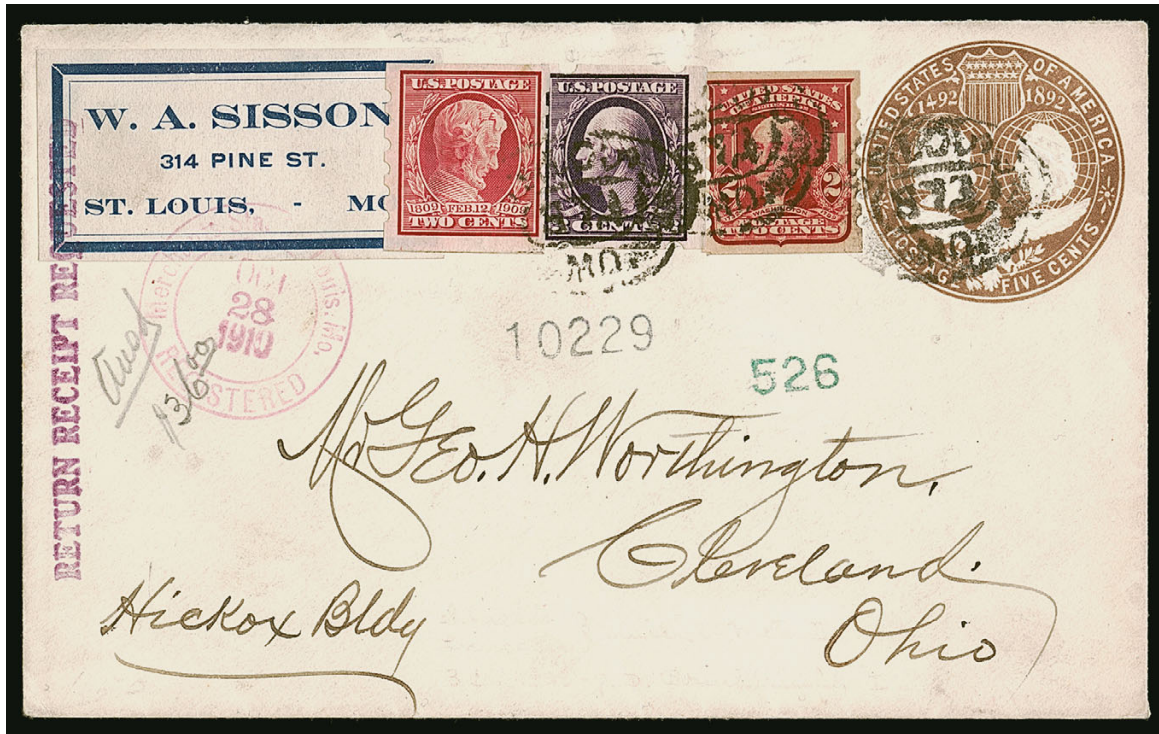 W. A. SISSON
314 PINE ST.
ST. LOUIS, - MO
U.S. POSTAGE
1809 FEB. 12 1909
TWO CENTS
U.S. POSTAGE
CENTS
UNITED STATES
OF AMERICA
2 2
TWO CENTS
UNITED STATES OF AMERICA
1492 1892
POSTAGE FIVE CENTS
MO.
MO.
MO.
RETURN RECEIPT REQUESTED
ouis, Mo.
OCT
28
1910
REGISTERED
13600
10229
526
Mr Geo. H. Worthington,
Cleveland.
Ohio
Hickox Bldg